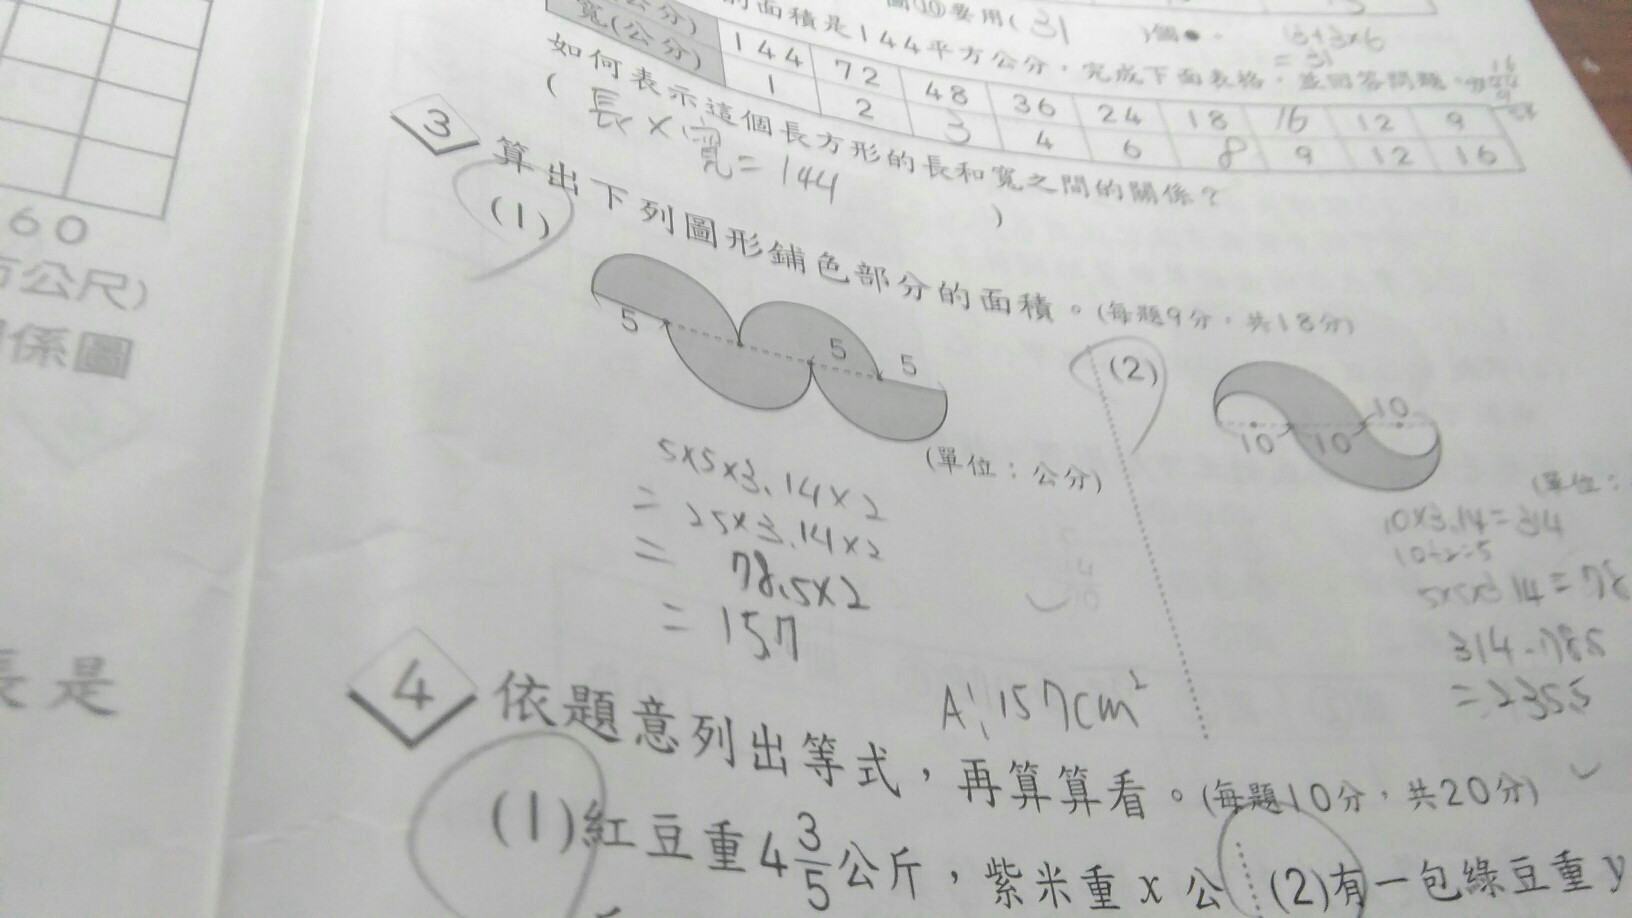 圖⑩要用( 31 )個●。
的面積是144平方公分，完成下面表格，並回答問題。
寬(公分)
144 72 48 36 24 18 16 12 9
1 2 3 4 6 8 9 12 16
如何表示這個長方形的長和寬之間的關係？
( 長×寬=144 )
3 算出下列圖形鋪色部分的面積。(每題9分，共18分)
(1)
5
5
5
(單位：公分)
5×5×3.14×2
= 25×3.14×2
= 78.5×2
= 157
A: 157cm²
(2)
10
10
10
(單位：
10×3.14=314
10÷2=5
5×5×3.14=78
=2355
60
方公尺)
係圖
長是
4 依題意列出等式，再算算看。(每題10分，共20分)
(1)紅豆重4 3/5 公斤，紫米重 x 公
(2)有一包綠豆重 y